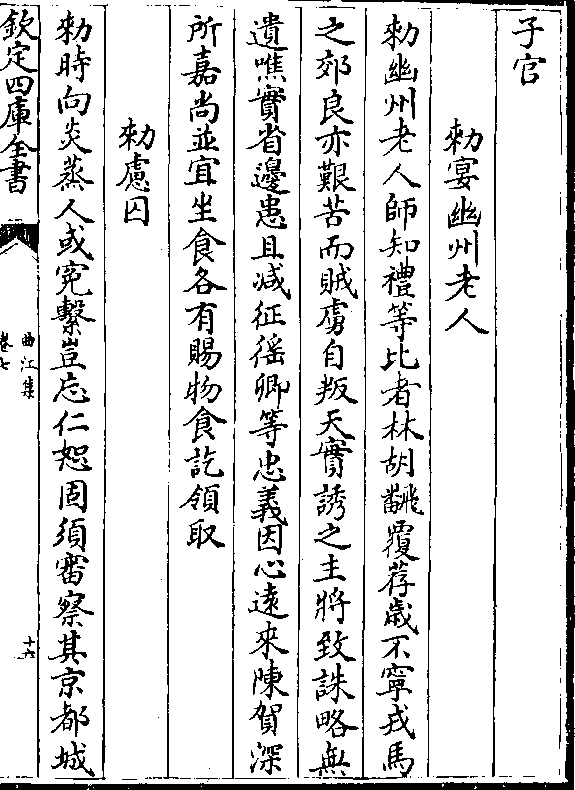 子官
勅宴幽州老人
勅幽州老人師知禮等比者林胡翻覆荐歳不寧戎馬
之郊良亦艱苦而賊虜自叛天實誘之主將致誅略無
遺噍實省邊患且减征徭卿等忠義因心遠來陳賀深
所嘉尚並宜坐食各有賜物食訖領取
勅慮囚
勅時向炎蒸人或寃繫豈忘仁恕固須審察其京都城
欽定四庫全書
曲江集
卷七
十六